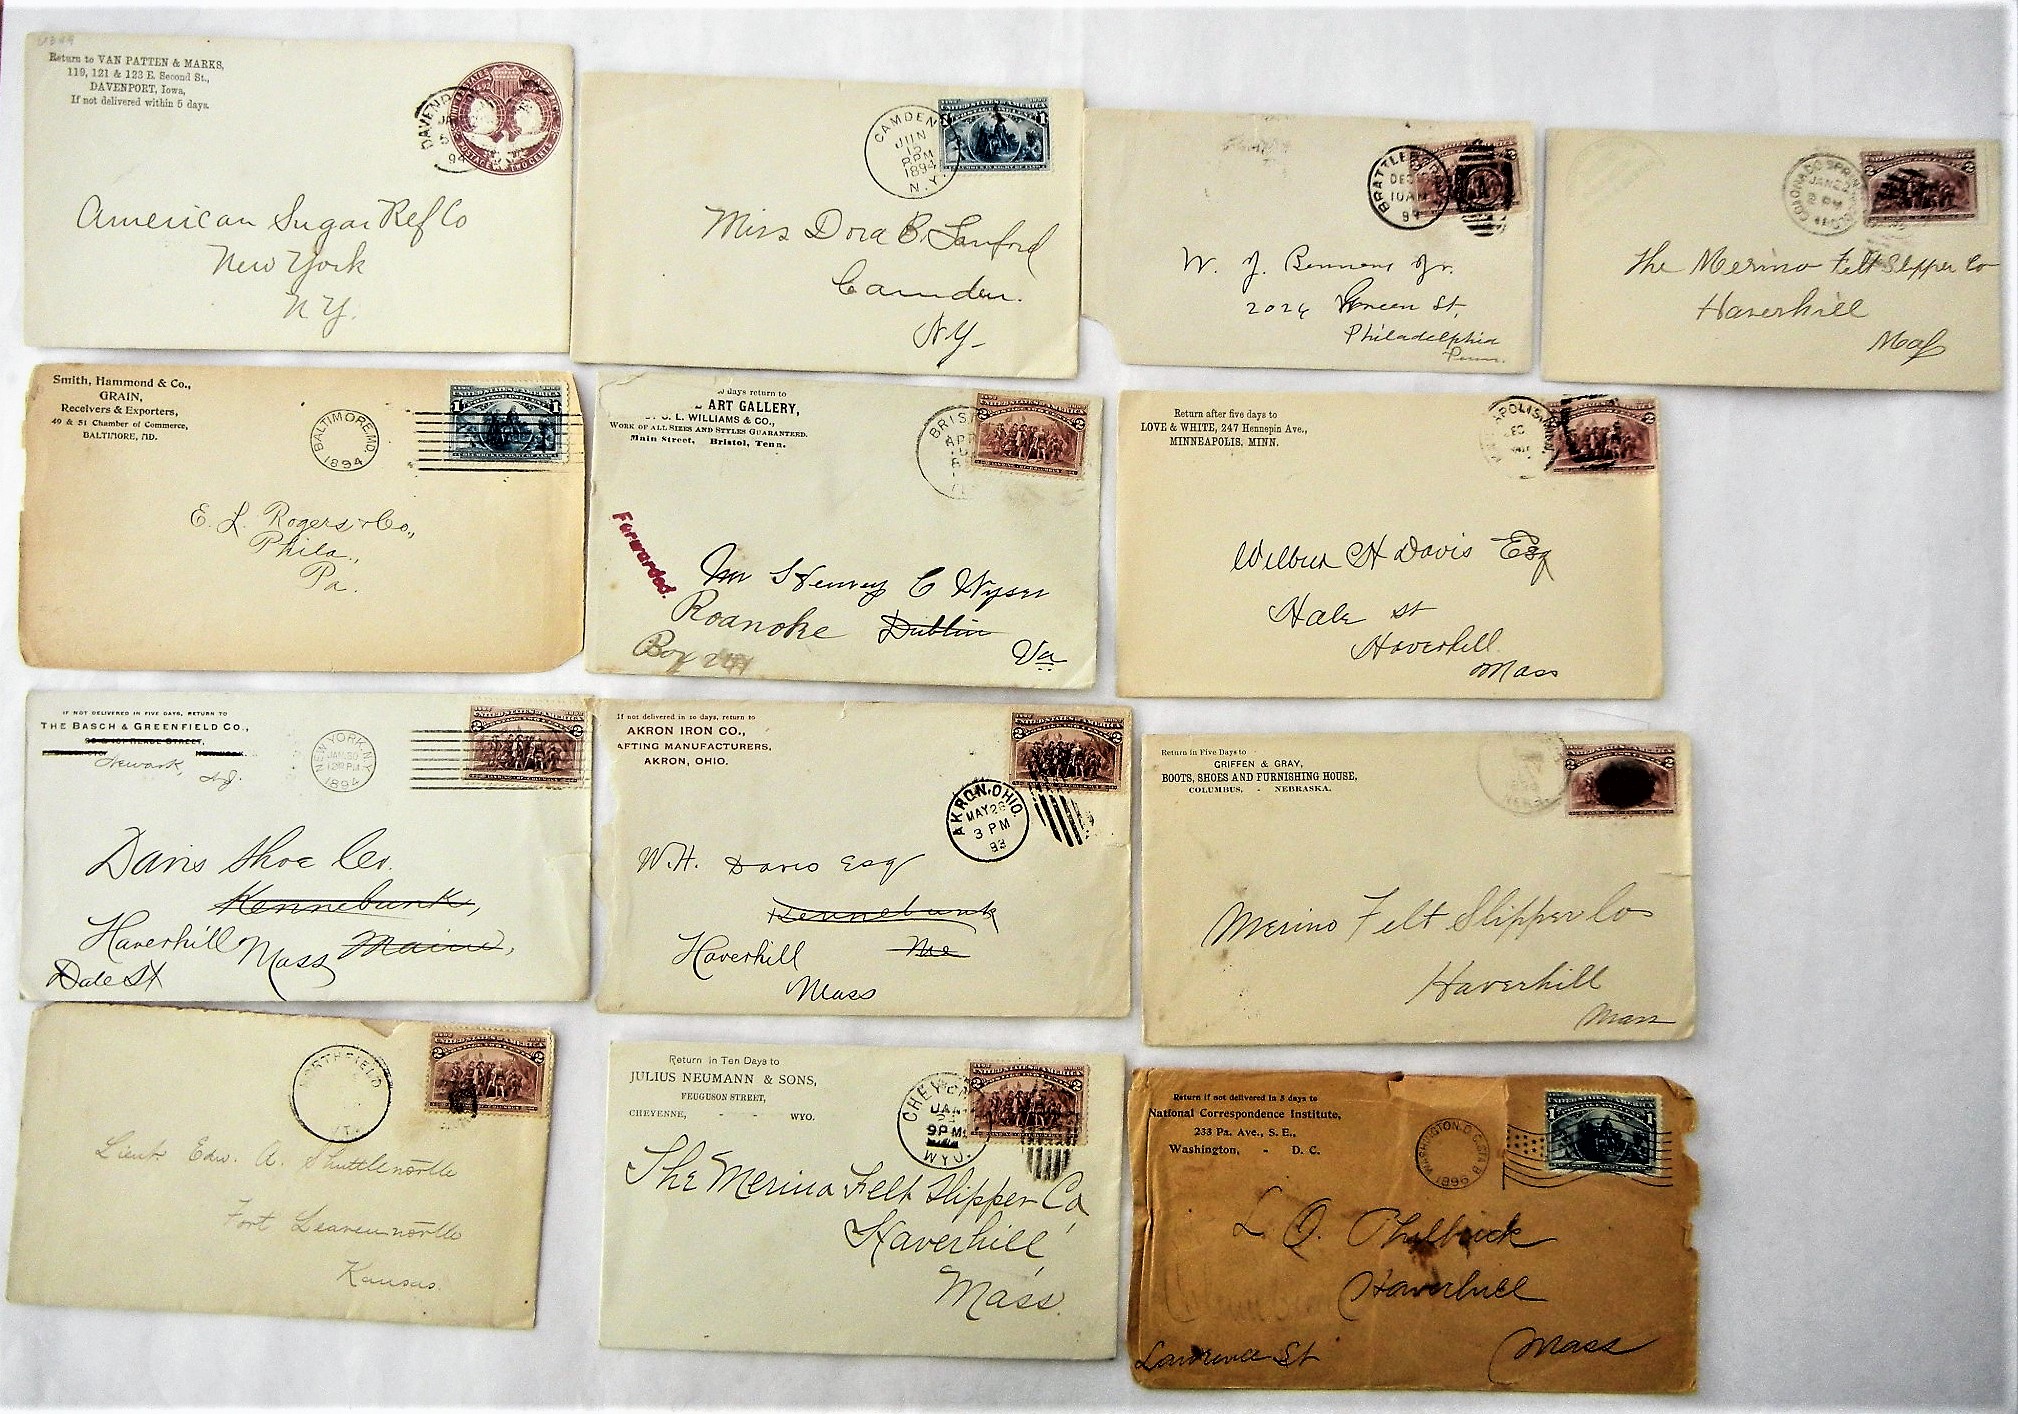 Return to VAN PATTEN & MARKS,
119, 121 & 123 E. Second St.,
DAVENPORT, Iowa,
If not delivered within 5 days.
94
American Sugar Ref Co
New York
N.Y.
CAMDEN
JUN
1894
N.Y.
Miss Dora B. Sanford
Camden.
NY-
BRATTLEBORO
DEC
10 AM
W. J.
2024 Green St,
Philadelphia
Penn.
COLORADO SPRINGS
JAN 22
2 PM
The Merino Felt Slipper Co
Haverhill
Mass
Smith, Hammond & Co.,
GRAIN,
Receivers & Exporters,
49 & 51 Chamber of Commerce,
BALTIMORE, MD.
BALTIMORE, MD.
1894
E. L. Rogers & Co.,
Phila.,
Pa.
days return to
ART GALLERY,
L. WILLIAMS & CO.,
WORK OF ALL SIZES AND STYLES GUARANTEED.
Main Street, Bristol, Tenn.
Forwarded.
Mr Henry C Wysor
Roanoke Dublin
Box Va
Return after five days to
LOVE & WHITE, 247 Hennepin Ave.,
MINNEAPOLIS, MINN.
DEC
Wilbur H Davis Esq
Hale St
Haverhill
Mass
IF NOT DELIVERED IN FIVE DAYS, RETURN TO
THE BASCH & GREENFIELD CO.,
Newark, NJ.
NEW YORK, N.Y.
JAN 30
12 PM
1894
Davis Shoe Co.
Kennebunk,
Haverhill Mass Maine,
Dale St
If not delivered in 10 days, return to
AKRON IRON CO.,
AFTING MANUFACTURERS,
AKRON, OHIO.
AKRON, OHIO.
MAY 26
3 PM
93
W.H. Davis Esq
Kennebunk
Haverhill Me
Mass
Return in Five Days to
GRIFFEN & GRAY,
BOOTS, SHOES AND FURNISHING HOUSE,
COLUMBUS, - NEBRASKA.
Merino Felt Slipper Co
Haverhill
Mass
NORTHFIELD
VT.
Lieut. Edw. A. Shuttleworth
Fort Leavenworth
Kansas.
Return in Ten Days to
JULIUS NEUMANN & SONS,
FEUGUSON STREET,
CHEYENNE, - - WYO.
CHEYENNE
JAN
9 PM
WYO.
The Merino Felt Slipper Co,
Haverhill,
Mass.
Return if not delivered in 5 days to
National Correspondence Institute,
233 Pa. Ave., S. E.,
Washington, - D. C.
WASHINGTON, D.C.
1896
L. Q. Philbrick
Haverhill
Lawrence St Mass